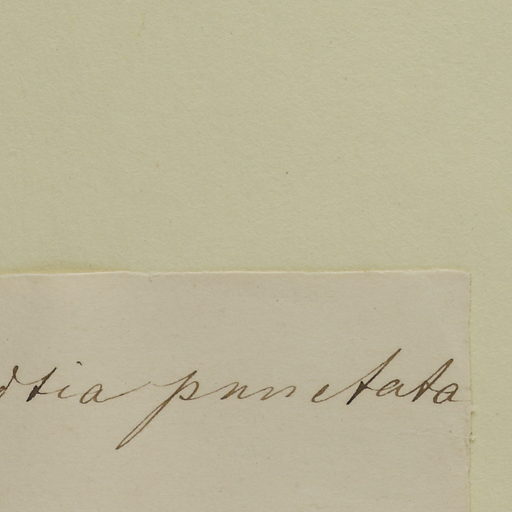 dtia punctata